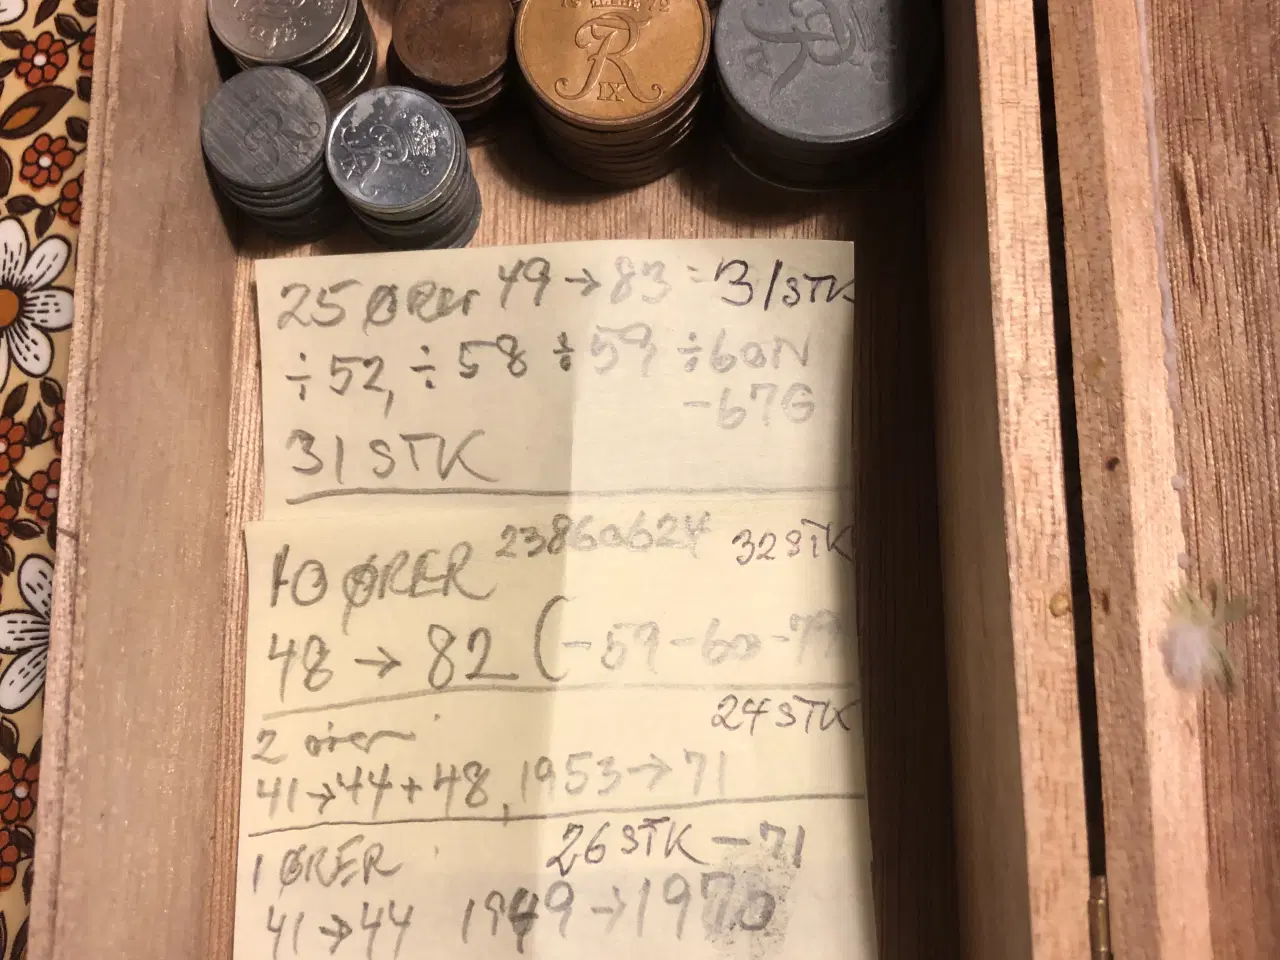 R
IX
25 ØRER 49 → 83 = 31 STK
÷52, ÷58 ÷59, ÷60N
-67G
31 STK
10 ØRER 23860624 32 STK
48 → 82 (-59-60-79
24 STK
2 ører
41→44+48, 1953→71
1 ØRER 26 STK -71
41→44 1949→1970